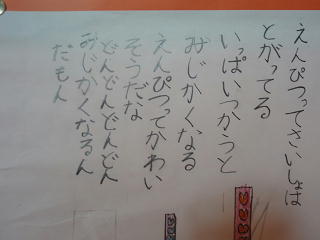 えんぴつってさいしょは
とがってる
いっぱいつかうと
みじかくなる
えんぴつってかわい
そうだな
どんどんどんどん
みじかくなるん
だもん